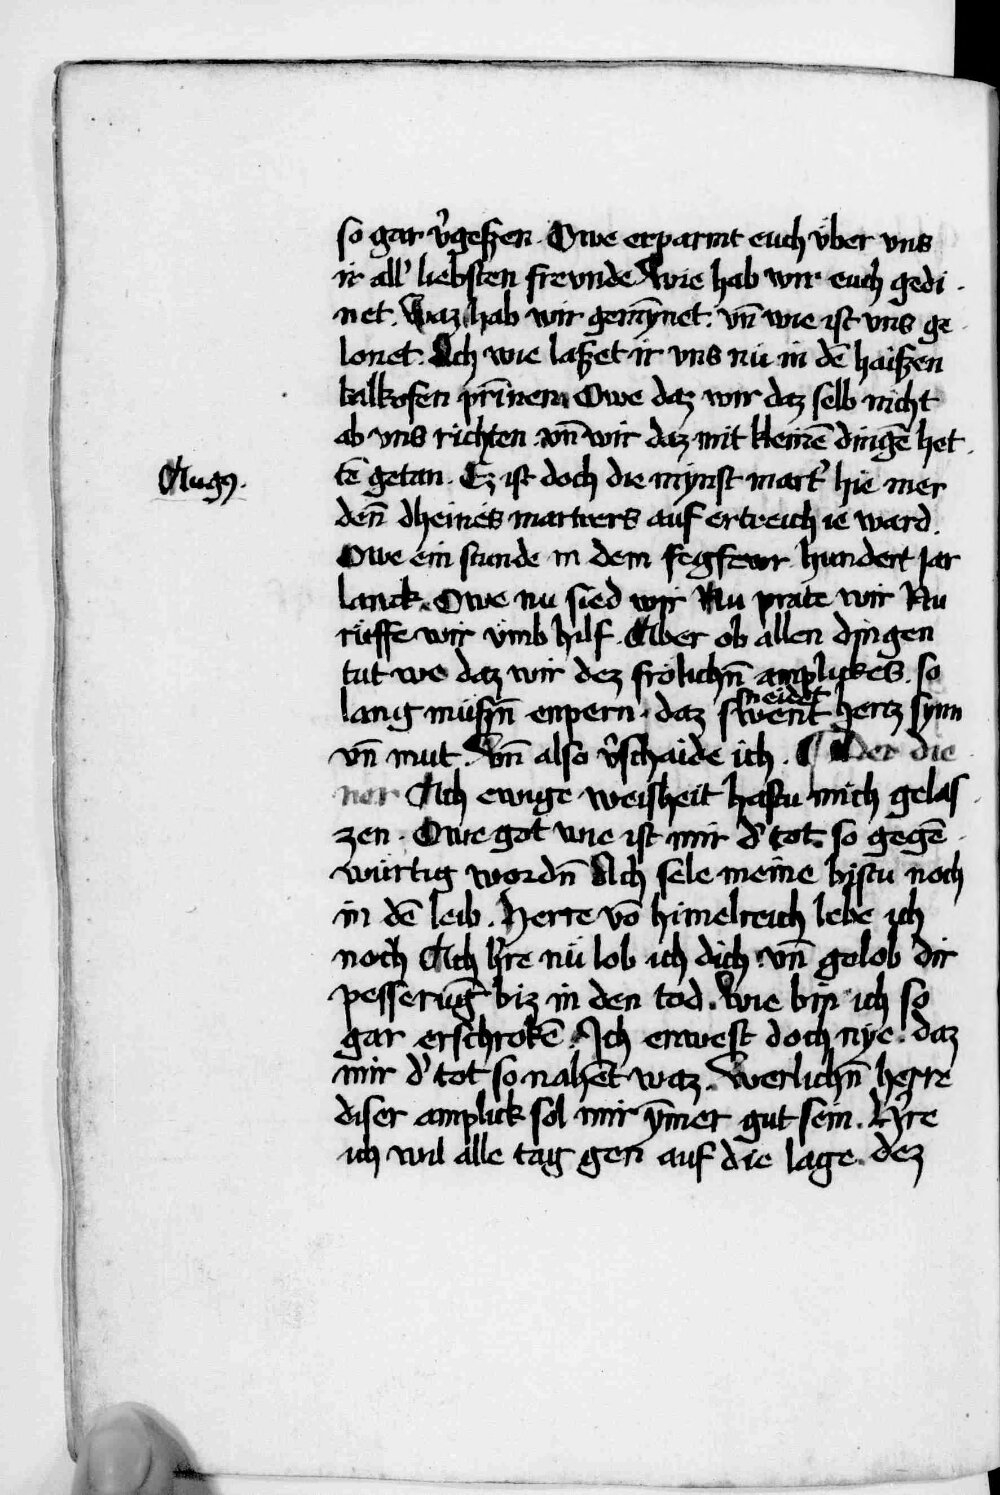 so gar v̉geßen. Owe erparmt euch über vns
ir all̉ liebsten freunde Wie hab wir euch gedi
net. Waz hab wir gemȳnet. vn̄ wie ist vns ge
lonet. Ach wie laßet ir vns nü in dē haißen
kalkofen prīnen. Owe daz wir daz selb nicht
ab vns richten. vn̄ wir daz mit kleinē dingē het
tē getan. Ez ist doch die mynst mart̉ hie mer
Augꝯ.
den̄ dheines martrers auf ertreich ie ward.
Owe ein stunde in dem fegfewr hundert jar
lanck. Owe nu sied wir Nu prate wir Nu
rüffe wir ümb hilf. Aber ob allen dingen
tut we daz wir dez frölichn̄ amplickes. so
lang müßn̄ enpern. daz swent hertz synn
neidet
vn̄ mut. Vn̄ also v̉schaide ich. Der die
ner Ach ewige weisheit hastu mich gelas
zen. Owe got wie ist mir d̉ tot so gegē
würtig wordn̄ Ach sele meine bistu noch
in dē leib. Herre vō himelreich lebe ich
noch Ach h̉re nü lob ich dich vn̄ gelob dir
pesserūg biz in den tod. Wie bin ich so
gar erschrokē. Ich enwest doch nye. daz
mir d̉ tot so nahēt waz. Werlichn̄ herre
diser amplick sol mir ȳmer gut sein. H̉re
ich wil alle tag gen auf die lage. dez